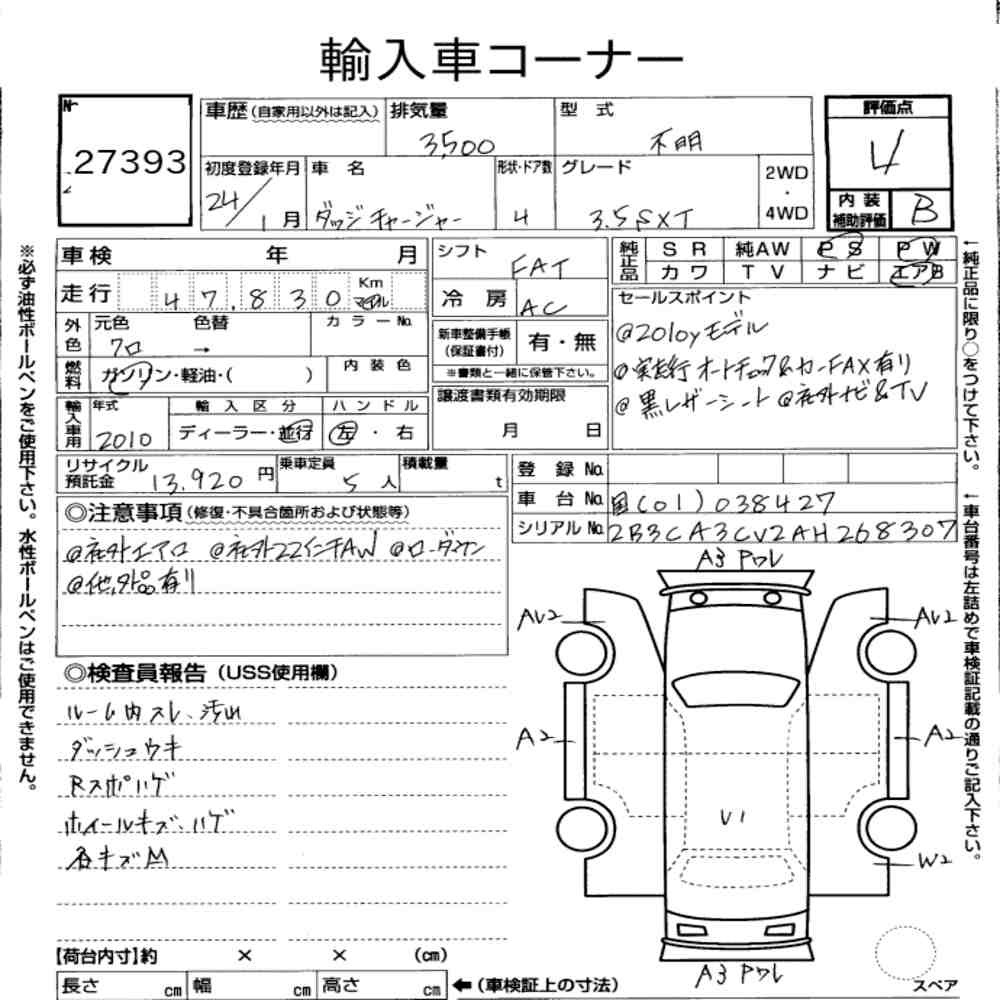 輸入車コーナー
№
27393
車歴(自家用以外は記入)
排気量
3,500
型 式
不明
評価点
4
初度登録年月
24/1月
車 名
ダッジチャージャー
形状・ドア数
4
グレード
3.5SXT
2WD
・
4WD
内 装
補助評価
B
車検 年 月
シフト
FAT
純正品
SR 純AW PS PW
カワ TV ナビ エアB
走行 47.830 Km マイル
冷 房
AC
セールスポイント
@2010yモデル
@実走行 オートチェック&カーFAX有り
@黒レザーシート @社外ナビ&TV
外色
元色 色替
クロ →
カラーNo.
新車整備手帳
(保証書付)
有・無
※書類と一緒に保管下さい。
燃料
ガソリン・軽油・( )
内 装 色
譲渡書類有効期限
月 日
輸入車用
年式
2010
輸 入 区 分
ディーラー・並行
ハ ン ド ル
左 ・ 右
リサイクル
預託金
13,920 円
乗車定員
5 人
積載量
t
登 録 No.
車 台 No.
国(01)038427
シリアルNo.
2B3CA3CV2AH268307
◎注意事項(修復・不具合箇所および状態等)
@社外エアロ @社外22インチAW @ローダウン
@他,外品有り
◎検査員報告(USS使用欄)
ルーム内スレ、汚れ
ダッシュウキ
Rスポハゲ
ホイールキズ、ハゲ
各キズM
A3 Pワレ
AU2
AU2
A2
A2
U1
W2
A3 Pワレ
スペア
【荷台内寸】約 × × (cm)
長さ cm 幅 cm 高さ cm ←(車検証上の寸法)
※必ず油性ボールペンをご使用下さい。水性ボールペンはご使用できません。
←純正品に限り○をつけて下さい。
←車台番号は左詰めで車検証記載の通りご記入下さい。